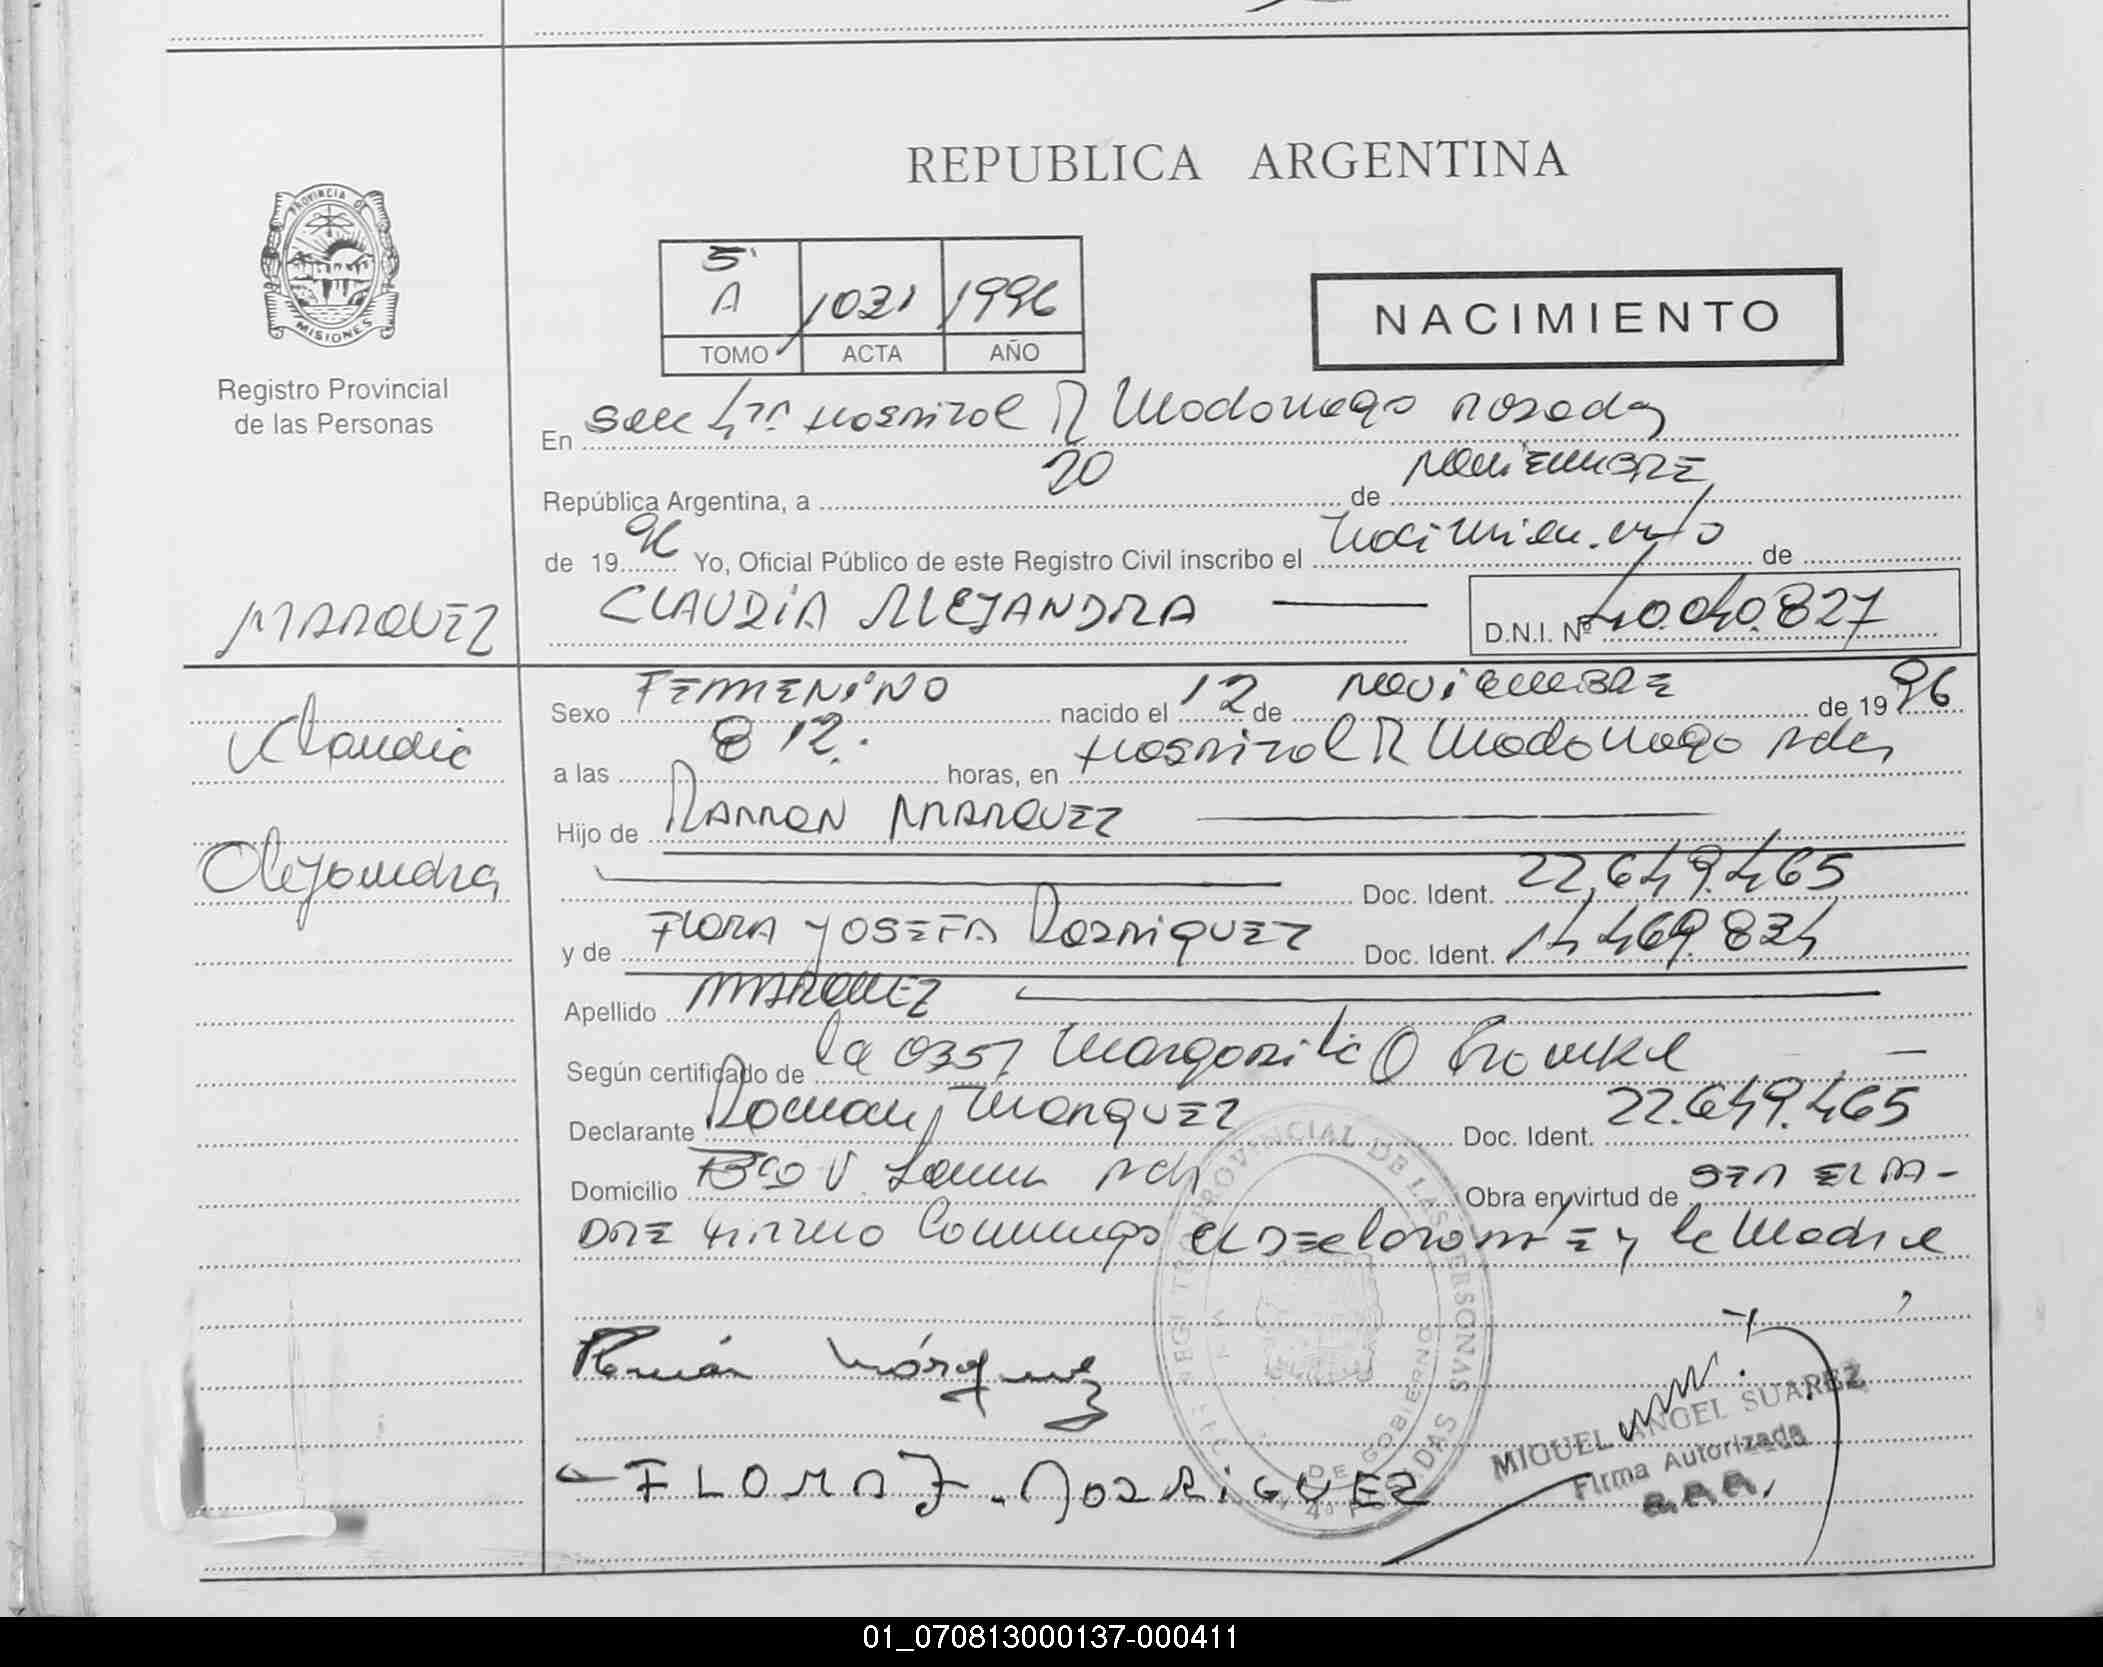 REPUBLICA ARGENTINA
PROVINCIA DE
MISIONES
Registro Provincial
de las Personas
5ª
A 1031 1996
TOMO ACTA AÑO
NACIMIENTO
En Secc Hospital R Madariaga Posadas
República Argentina, a 20 de NOVIEMBRE
de 1996 Yo, Oficial Público de este Registro Civil inscribo el Nacimiento de
MARQUEZ
CLAUDIA ALEJANDRA
D.N.I. Nº 40.040.827
Claudia
Alejandra
Sexo FEMENINO nacido el 12 de NOVIEMBRE de 1996
a las 8 12. horas, en Hospital R Madariaga Pdas
Hijo de RAMON MARQUEZ
Doc. Ident. 22.649.465
y de FLORA YOSEFA RODRIGUEZ Doc. Ident. 14 469.834
Apellido MARQUEZ
Según certificado de la Obst Margarita
Declarante Marquez Doc. Ident. 22.649.465
Domicilio Bº Pdas Obra en virtud de SER EL PA-
DRE Firman Conmigo el DEclarante y la Madre
Román Márquez
FLORA J. RODRIGUEZ
REGISTRO PROVINCIAL DE LAS PERSONAS
DE GOBIERNO
4ª POSADAS
MIGUEL ANGEL SUAREZ
Firma Autorizada
01_070813000137-000411